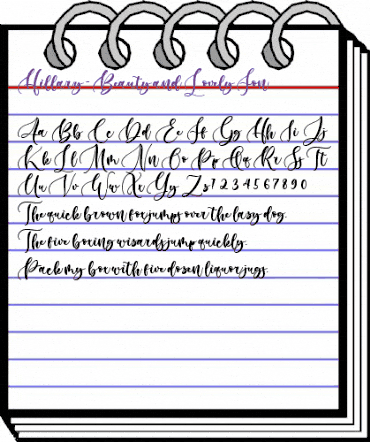 Hillary - Beauty and Lovely Fon
Aa Bb Cc Dd Ee Ff Gg Hh Ii Jj
Kk Ll Mm Nn Oo Pp Qq Rr Ss Tt
Uu Vv Ww Xx Yy Zz 1 2 3 4 5 6 7 8 9 0
The quick brown fox jumps over the lazy dog.
The five boxing wizards jump quickly.
Pack my box with five dozen liquor jugs.